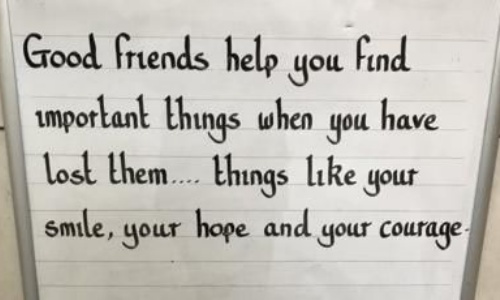 Good friends help you find
important things when you have
lost them.... things like your
smile, your hope and your courage.